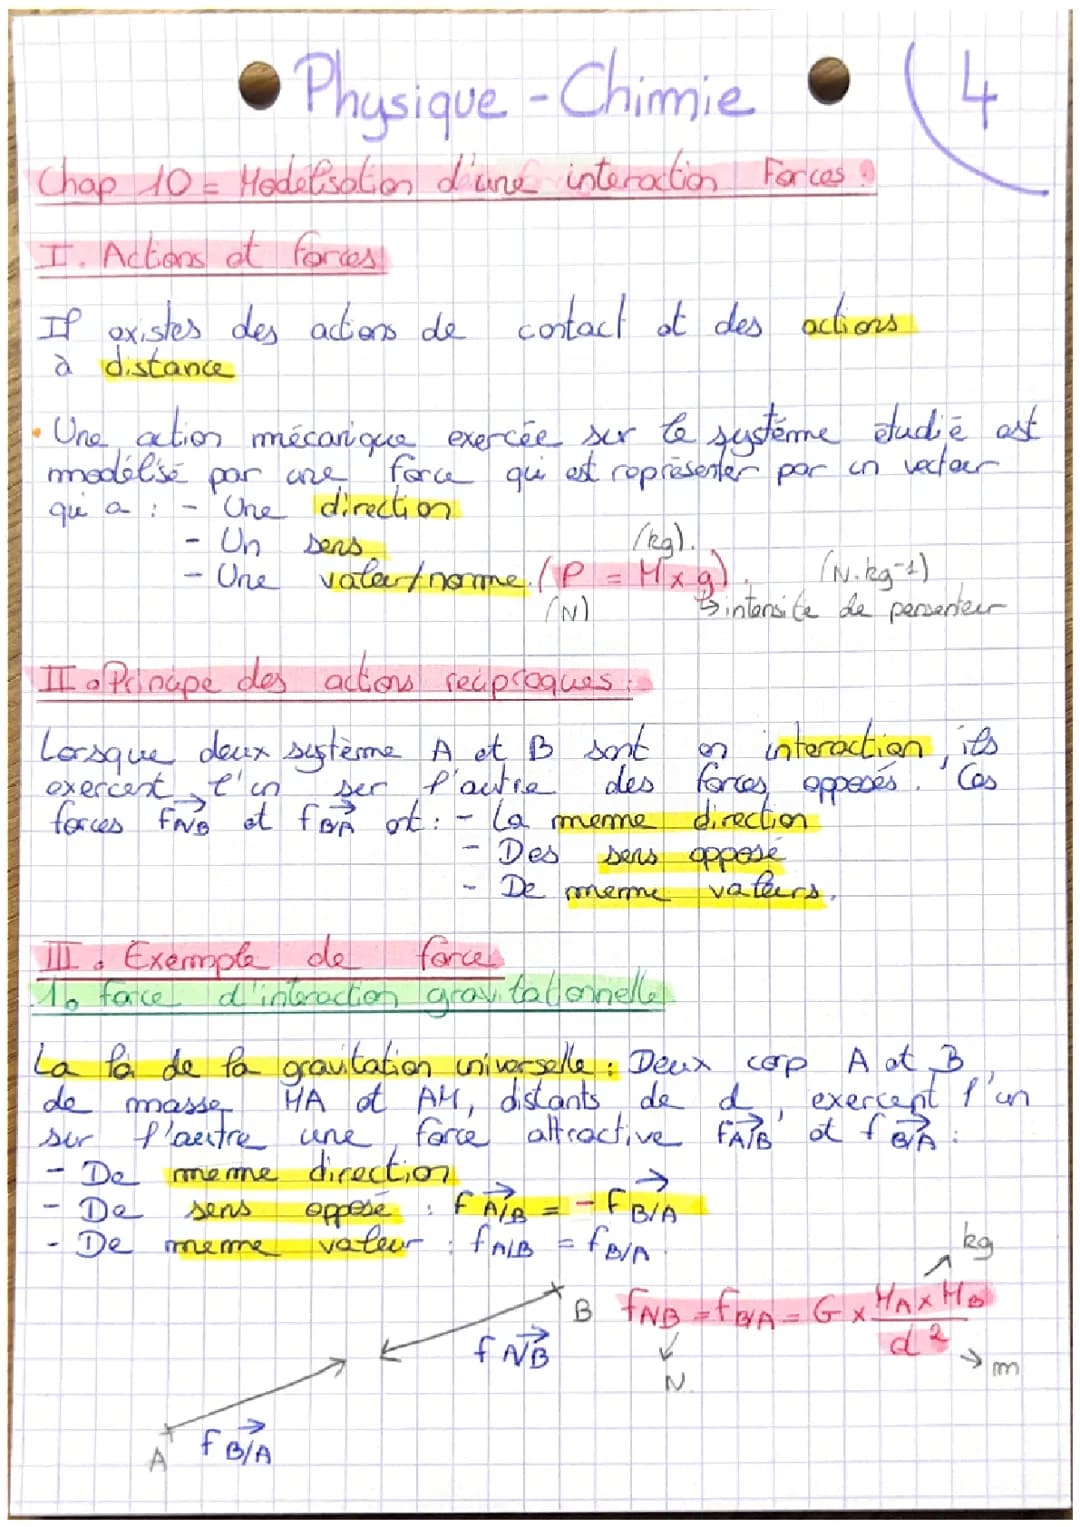 Physique - Chimie
4
Chap 10 = Modélisation d'une interaction Forces.
I. Actions et forces
Il existes des actions de contact et des actions
à distance
• Une action mécanique exercée sur le système étudié est
modélisé par une force qui est représenter par un vecteur
qui a : - Une direction
- Un sens (kg).
- Une valeur/norme. (P = M x g). (N.kg-1)
(N) ↳ intensite de pensenteur
II. Principe des actions réciproques :
Lorsque deux système A et B sont en interaction, ils
exercent l'un sur l'autre des forces opposés. Ces
forces fA/B et fB/A ont : - La meme direction
- Des sens opposé
- De meme valeurs.
III. Exemple de forces
1. force d'interaction gravitationnelle
La loi de la gravitation universelle : Deux corp A et B,
de masse MA et AM, distants de d, exercent l'un
sur l'autre une force attractive fA/B et fB/A :
- De meme direction
- De sens opposé : fA/B = - fB/A
- De meme valeur : fA/B = fB/A
kg
B fA/B = fB/A = G x MA x MB
d²
f A/B N m
A f B/A